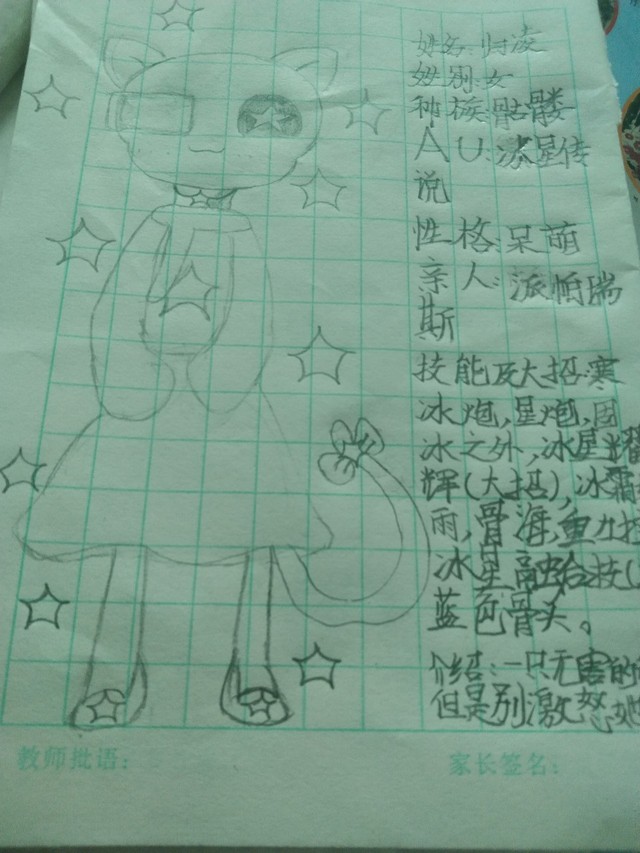 姓名:归凌
性别:女
种族:骷髅
AU:冰星传
说
性格:呆萌
亲人:派帕瑞
斯
技能及大招:寒
冰炮,星炮,固
冰之外,冰星耀
辉(大招),冰霜
雨,骨海,重力控
冰星融合技(
蓝色骨头。
介绍:一只无害的
但是别激怒她
教师批语:
家长签名: